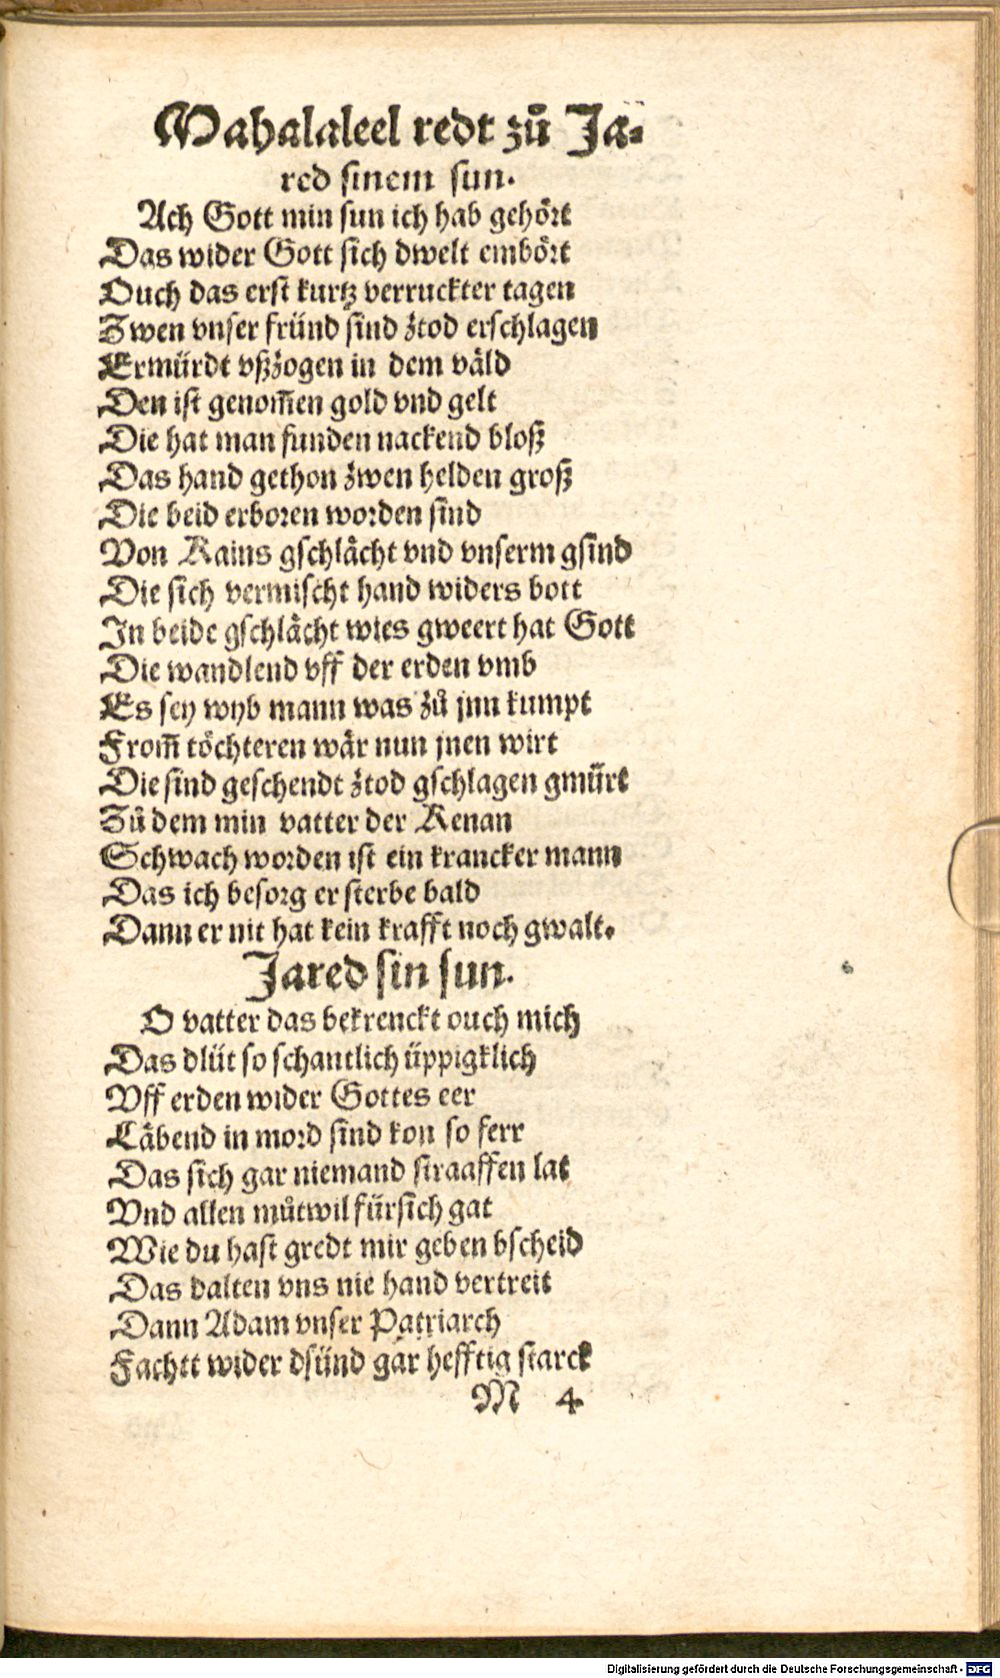 Mahalaleel redt zů Ja-
red sinem sun.
Ach Gott min sun ich hab gehört
Das wider Gott sich dwelt embört
Ouch das erst kurtz verruckter tagen
Zwen vnser fründ sind ztod erschlagen
Ermürdt vßzogen in dem väld
Den ist genom̃en gold vnd gelt
Die hat man funden nackend bloß
Das hand gethon zwen helden groß
Die beid erboren worden sind
Von Kains gschlächt vnd vnserm gsind
Die sich vermischt hand widers bott
In beide gschlächt wies gweert hat Gott
Die wandlend vff der erden vmb
Es sey wyb mann was zů jnn kumpt
From̃ töchteren wär nun jnen wirt
Die sind geschendt ztod gschlagen gmürt
Zů dem min vatter der Kenan
Schwach worden ist ein krancker mann
Das ich besorg er sterbe bald
Dann er nit hat kein krafft noch gwalt.
Jared sin sun.
O vatter das bekrenckt ouch mich
Das dlüt so schantlich üppigklich
Vff erden wider Gottes eer
Läbend in mord sind kon so ferr
Das sich gar niemand straaffen lat
Vnd allen můtwil fürsich gat
Wie du hast gredt mir geben bscheid
Das dalten vns nie hand vertreit
Dann Adam vnser Patriarch
Fachtt wider dsünd gar hefftig starck
M 4
Digitalisierung gefördert durch die Deutsche Forschungsgemeinschaft - DFG